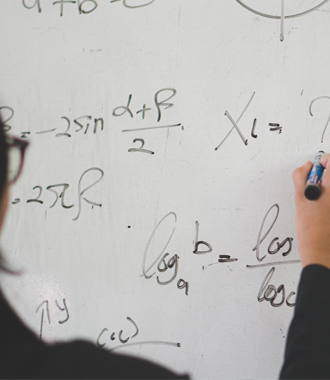 a+b
= -2sin α+β/2
X₁ = ?
= 2πR
logₐb = log/logc
↑y